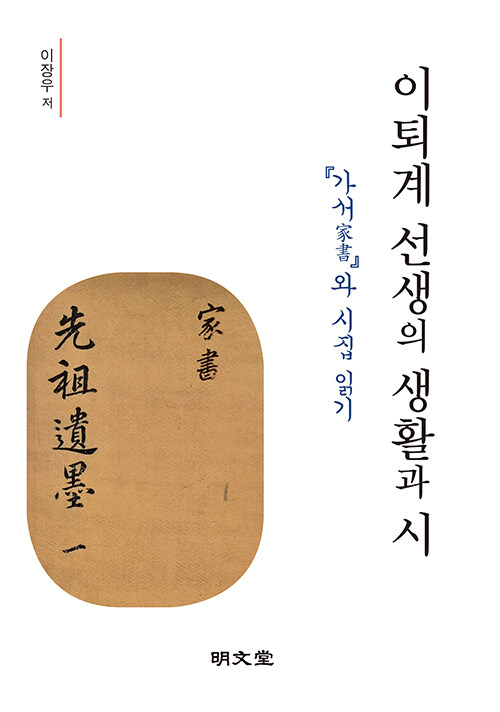 이퇴계 선생의 생활과 시
『가서家書』와 시집 읽기
이장우 저
家書
先祖遺墨 一
明文堂